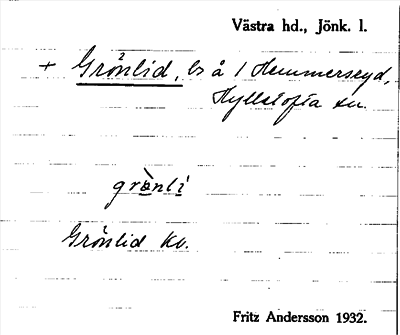 Västra hd., Jönk. l.
+ Grönlid, ls å 1 Hemmerseryd,
Hyllstofta sn.
grö̀nlì
Grönlid Kv.
Fritz Andersson 1932.